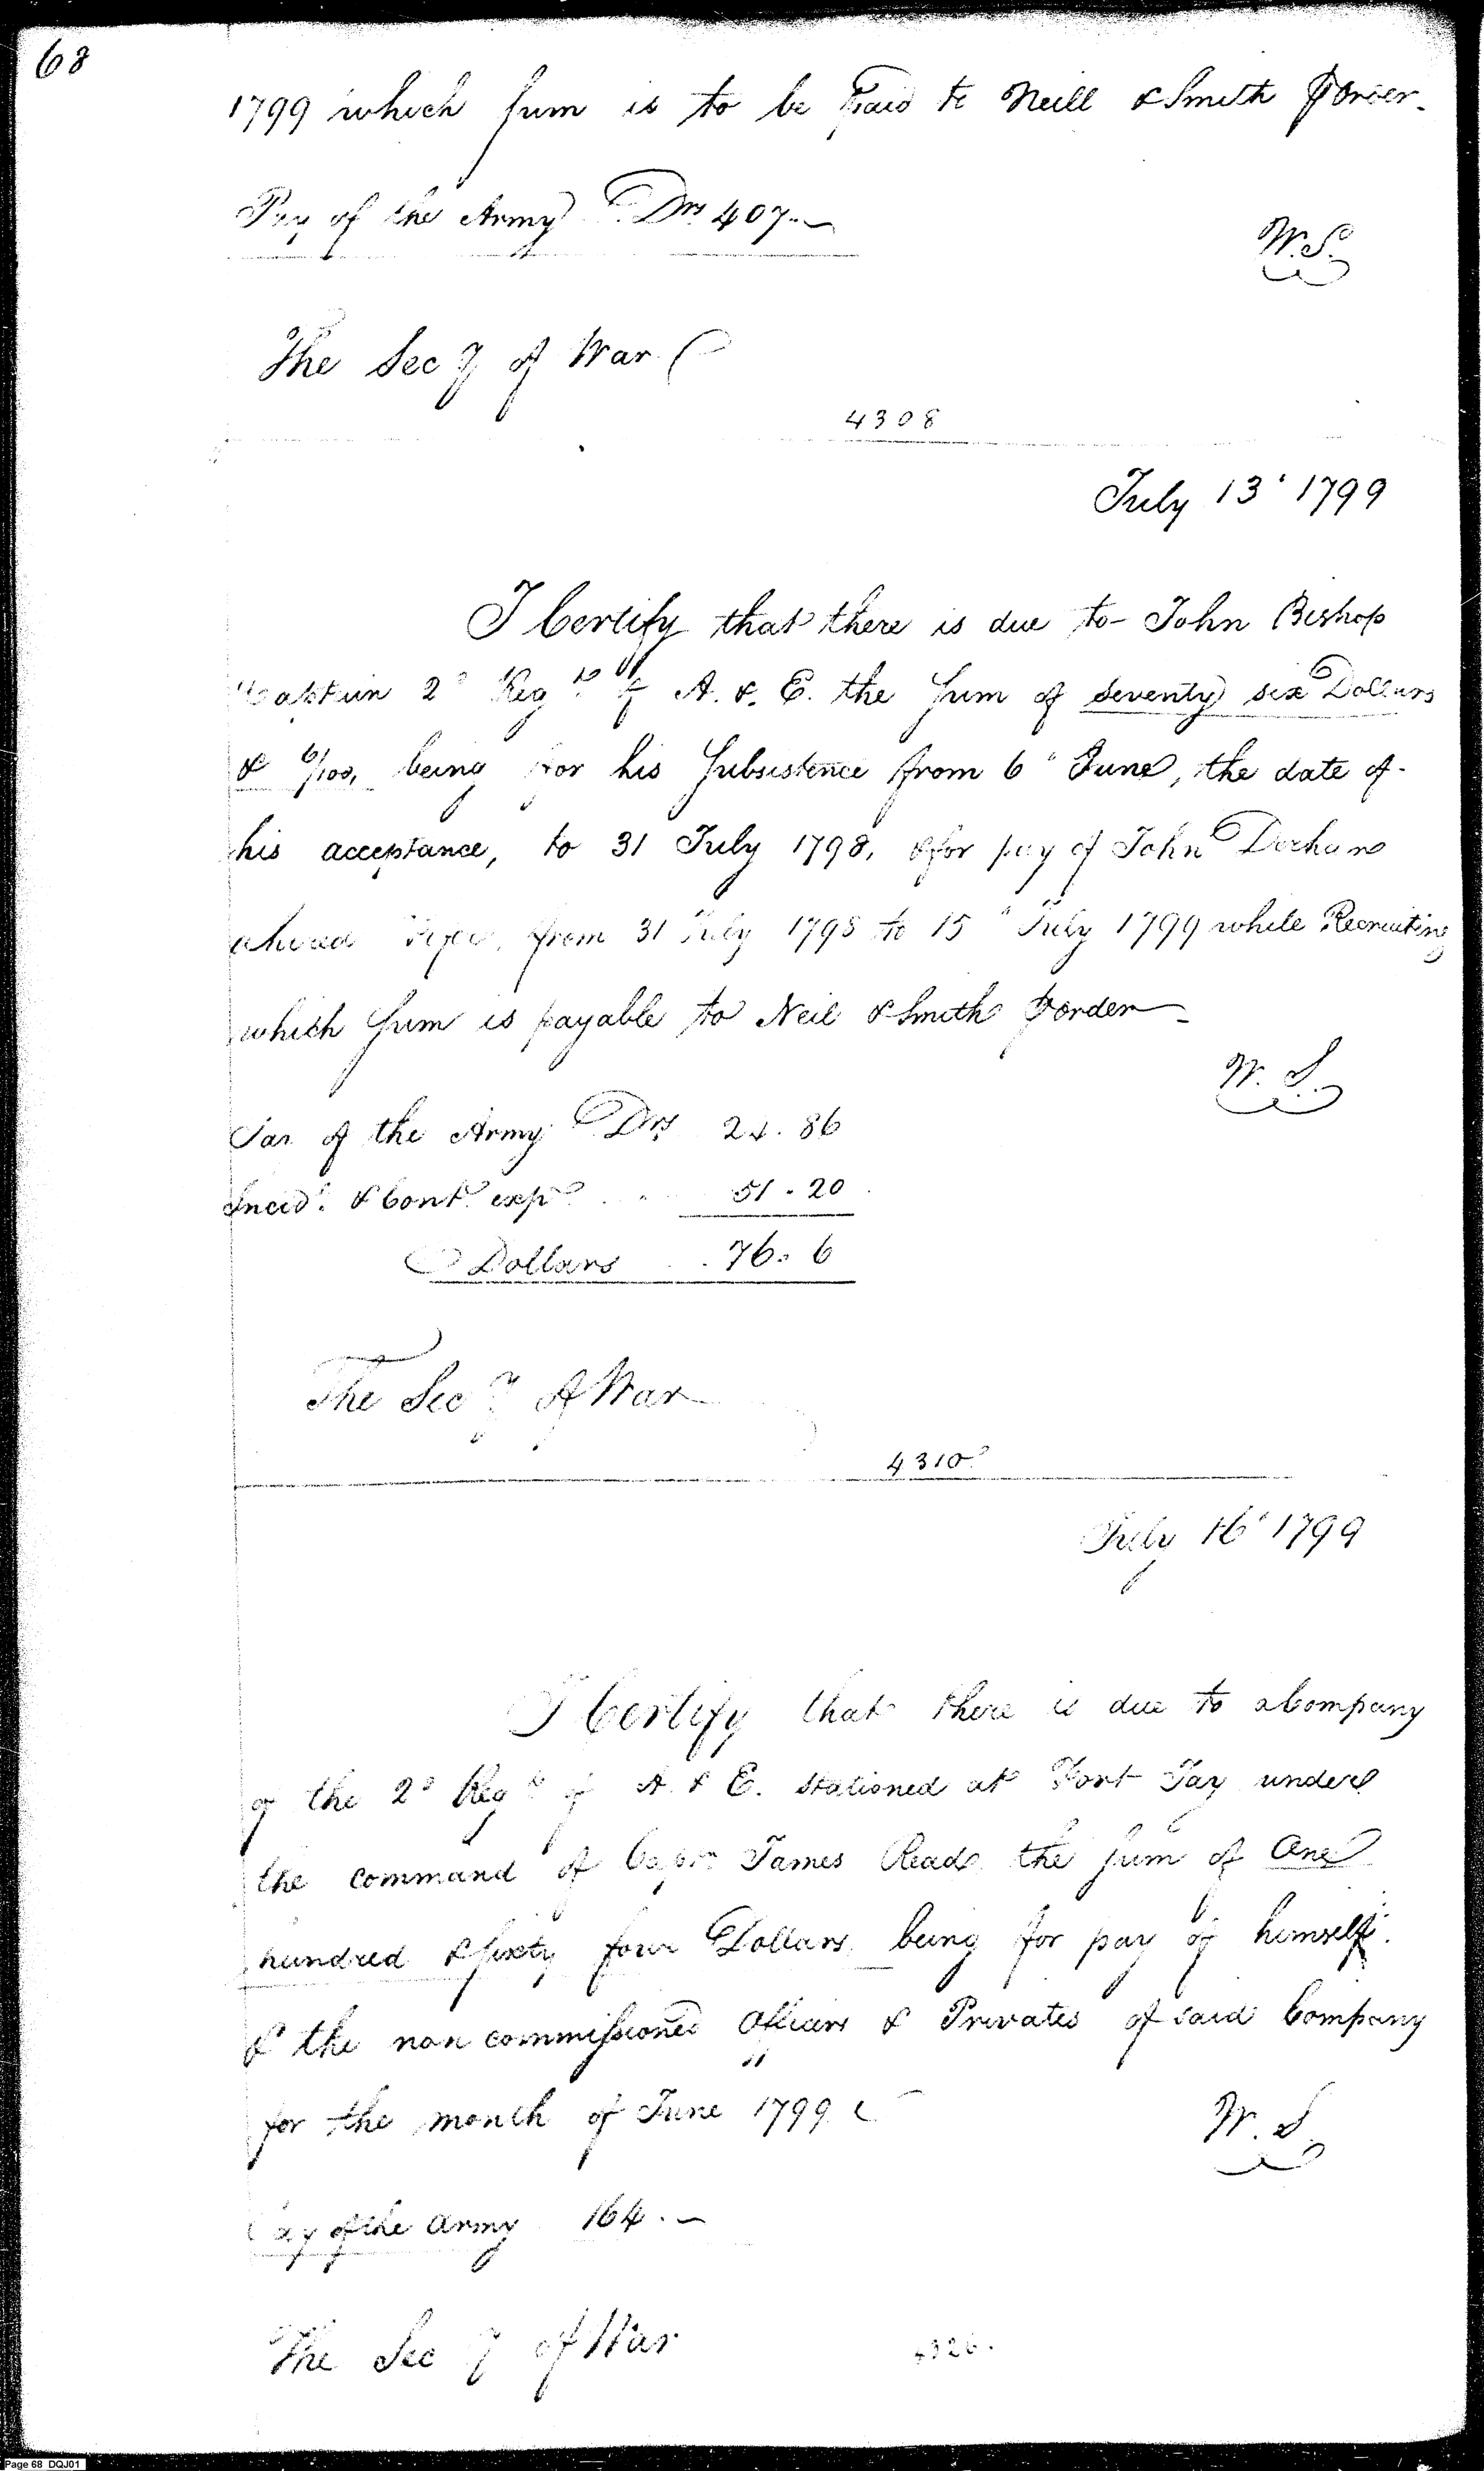 68
1799 which sum is to be Paid to Neill & Smith or order
Pay of the Army Drs 407..—
W.S.
The Secy of War
4308
July 13' 1799
I Certify that there is due to John Bishop
Captain 2d Regt of A. & E. the sum of seventy six Dollars
& 6/100, being for his Subsistence from 6" June, the date of
his acceptance, to 31 July 1798, & for pay of John
a hired Fifer, from 31 July 1798 to 15" July 1799 while Recruiting
which sum is payable to Neil & Smith or order
W. S.
Pay of the Army Drs 24.86
Incidt & Contt expe .. 51.20
Dollars .. 76.6
The Secy of War
4310
July 16' 1799
I Certify that there is due to a Company
of the 2d Regt of A. & E. stationed at Fort Jay under
the command of Captn James Read the sum of One
hundred & sixty four Dollars, being for pay of himself
& the non commissioned Officers & Privates of said Company
for the month of June 1799
W. S.
Pay of the Army 164.—
The Secy of War
4326.
Page 68 DQJ01